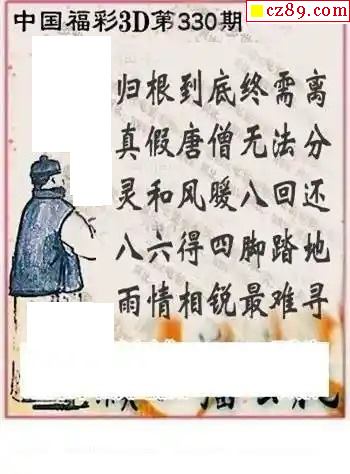 cz89.com
中国福彩3D第330期
归根到底终需离
真假唐僧无法分
灵和风暖八回还
八六得四脚踏地
雨情相锐最难寻